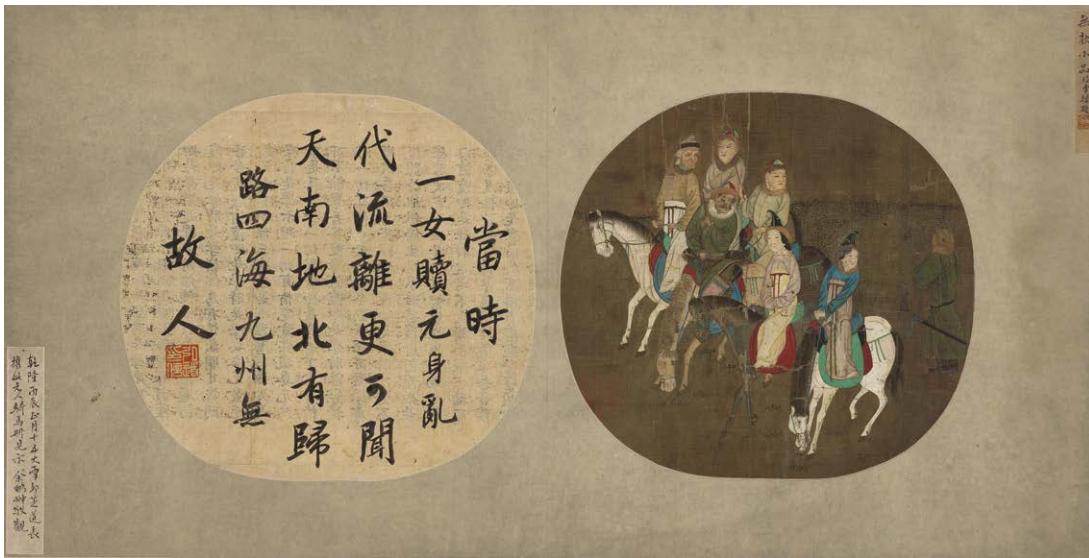 無款小品
當時
一女贖元身亂
代流離更可聞
天南地北有歸
路四海九州無
故人
乾隆丙辰正月十五大雪